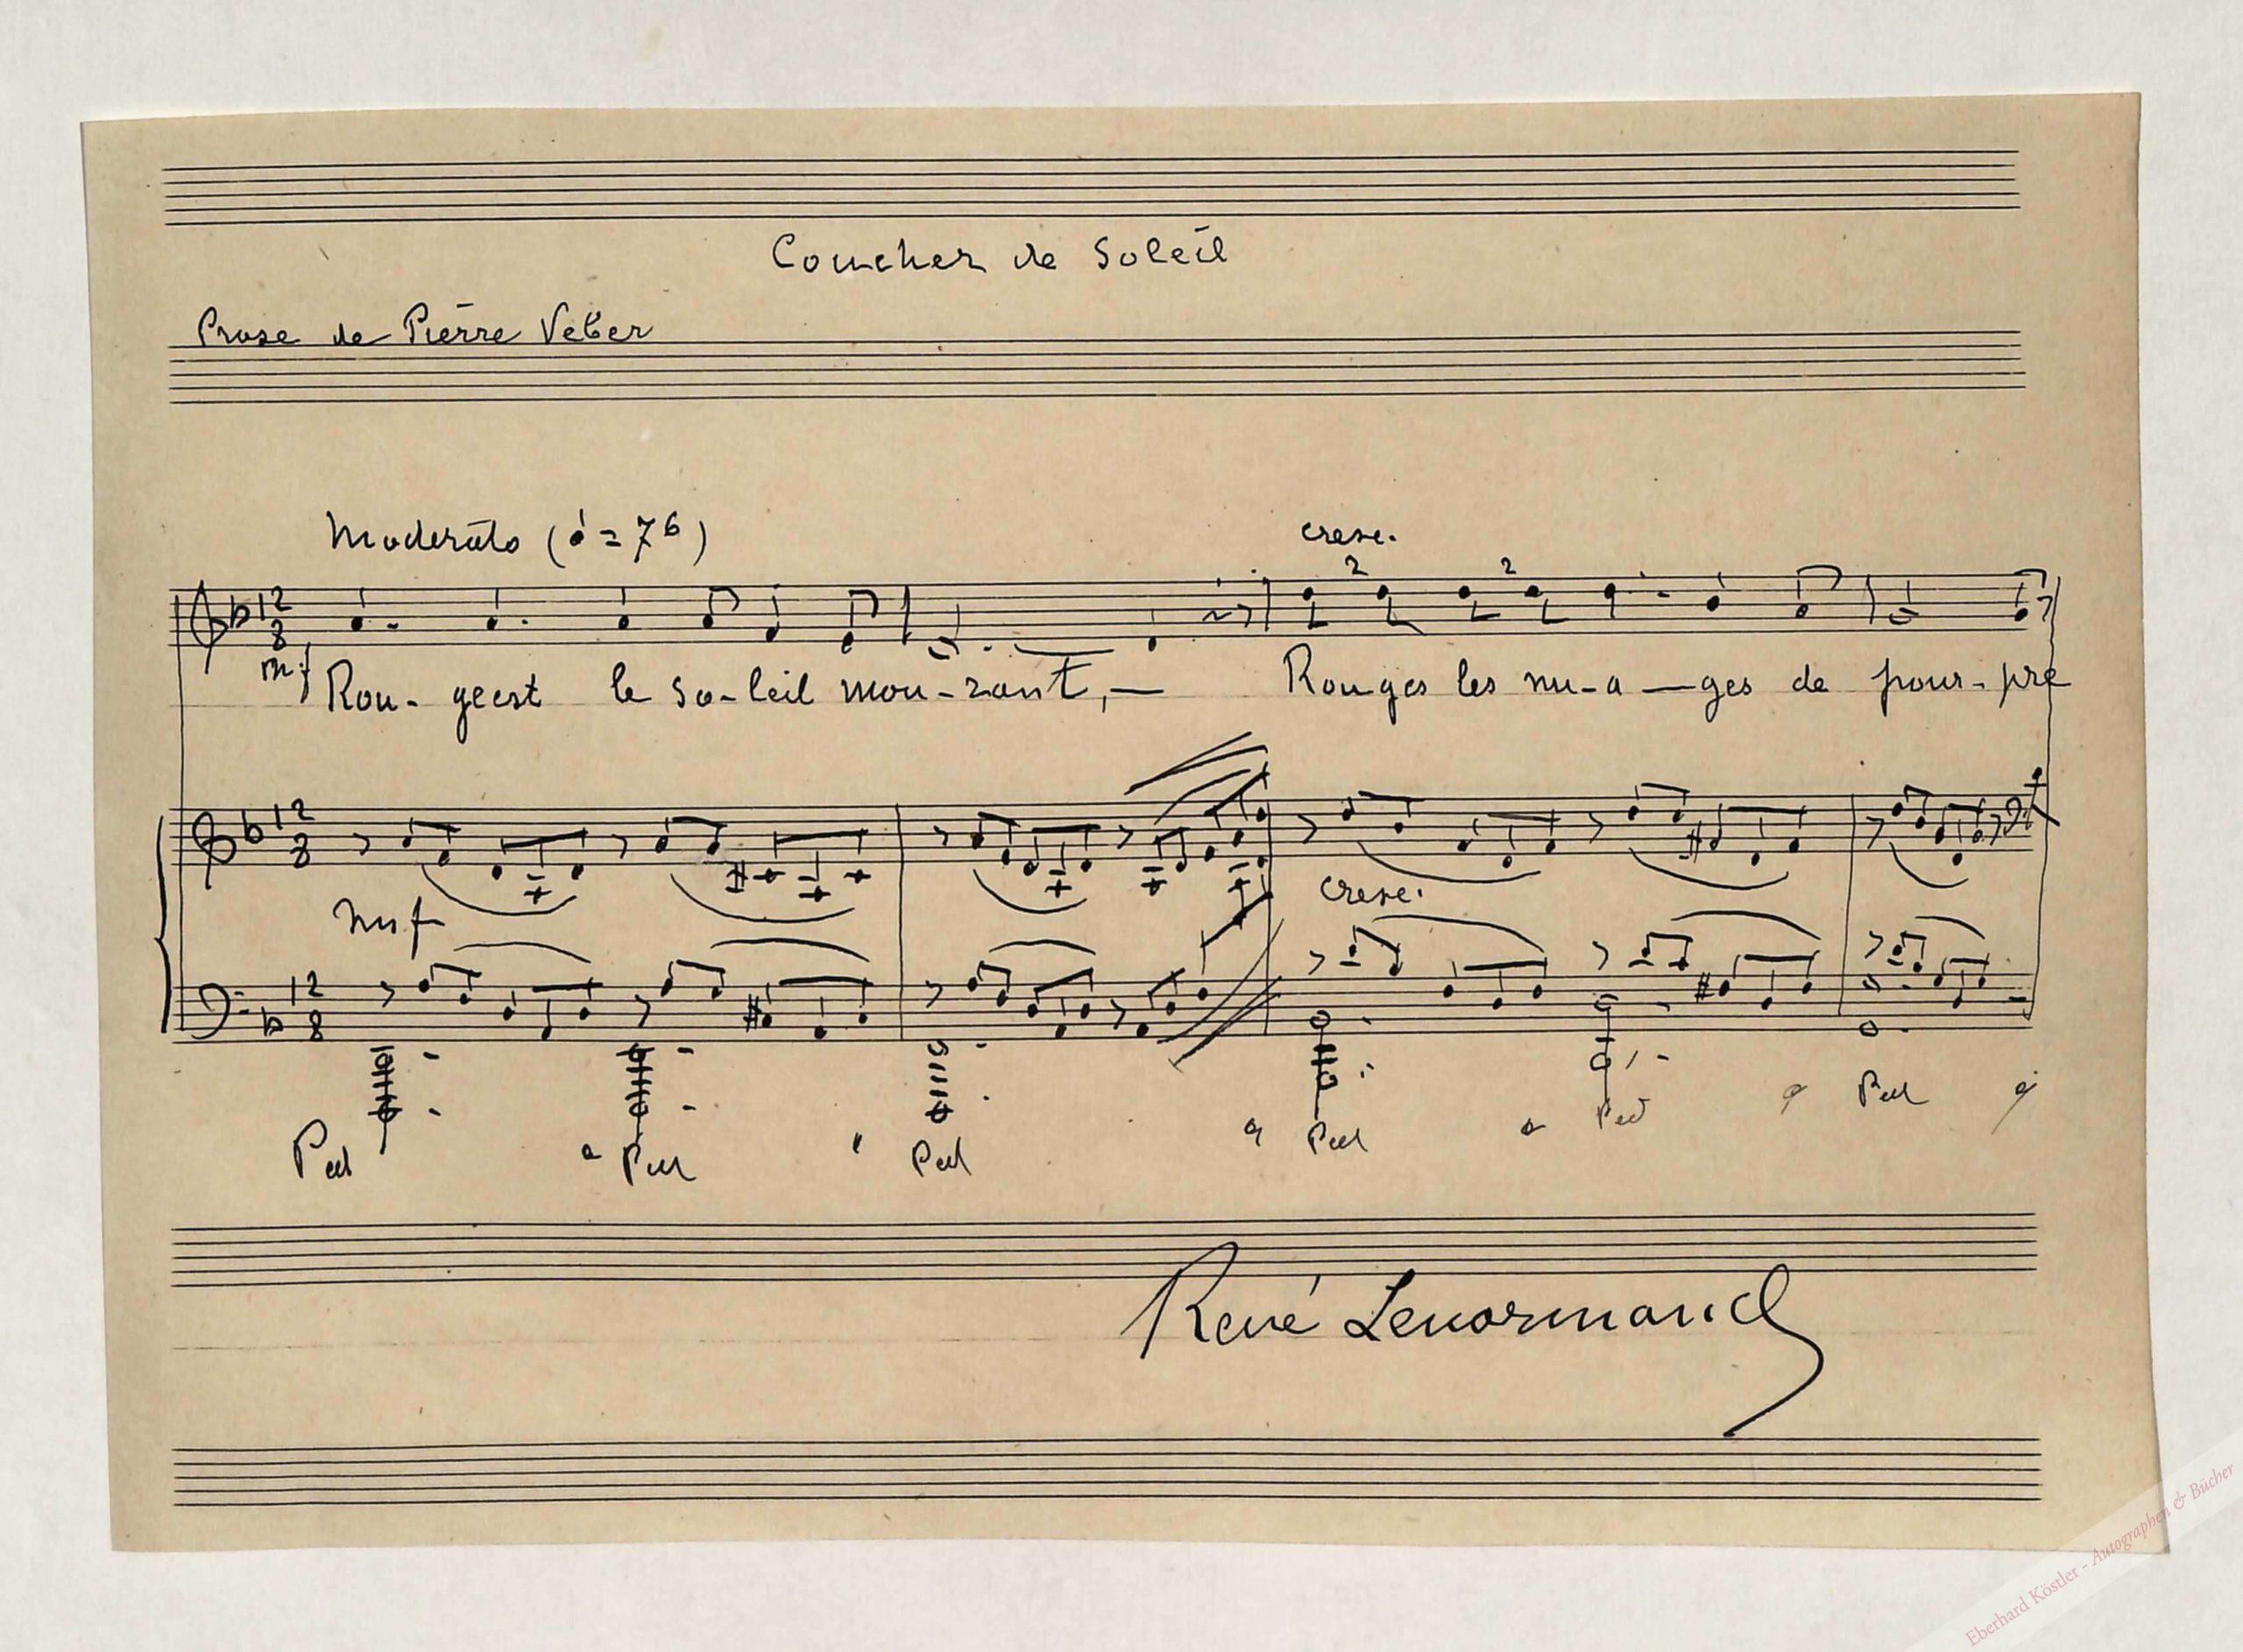 Coucher de Soleil
Prose de Pierre Veber
Moderato (♩ = 76)
cresc.
2 2
12
8
mf
Rou- geest le so-leil mou-rant,— Rouges les nu-a—ges de pour-pre
12
8
mf
cresc.
12
8
Ped Ped Ped Ped Ped Ped
René Lenormand
Eberhard Köstler - Autographen & Bücher